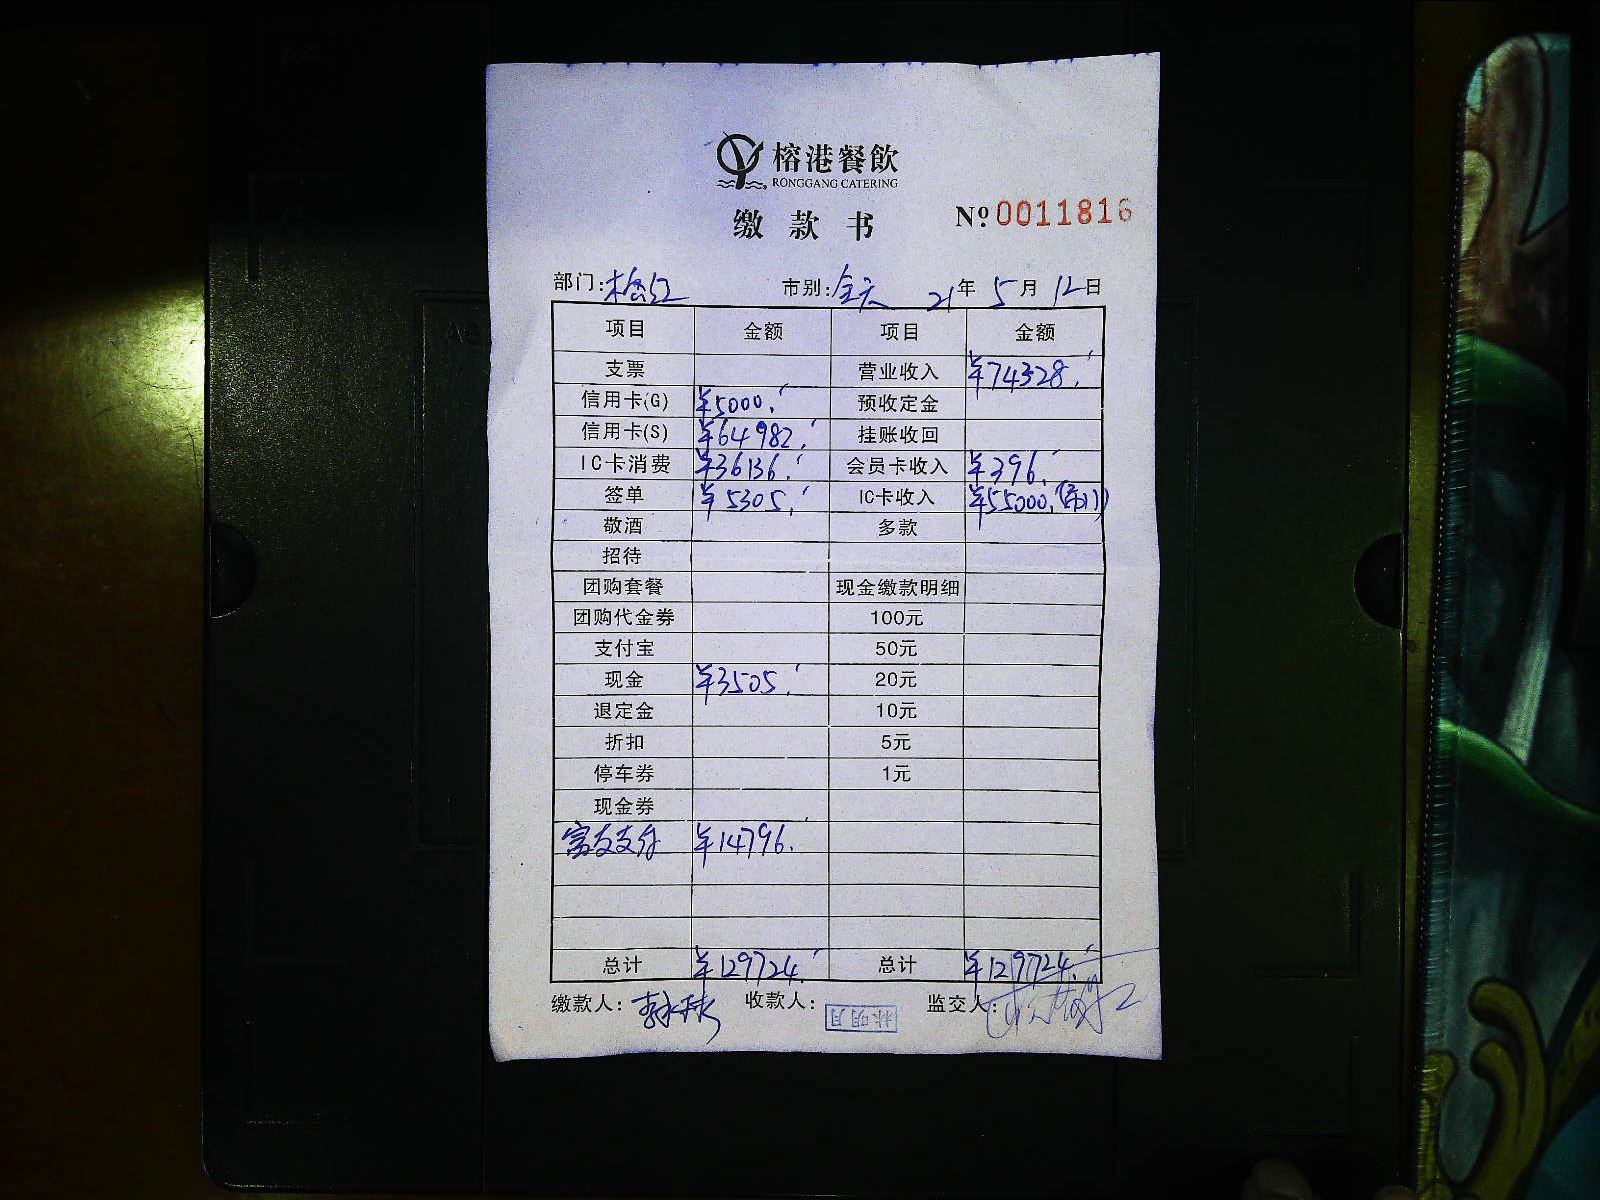 榕港餐飲
RONGGANG CATERING
缴款书 Nº 0011816
部门: 市别:全天 21年5月12日
项目 金额 项目 金额
支票 营业收入 ¥74328.
信用卡(G) ¥5000. 预收定金
信用卡(S) ¥64982. 挂账收回
IC卡消费 ¥36136. 会员卡收入 ¥396.
签单 ¥5305. IC卡收入 ¥55000.
敬酒 多款
招待
团购套餐 现金缴款明细
团购代金券 100元
支付宝 50元
现金 ¥3505. 20元
退定金 10元
折扣 5元
停车券 1元
现金券
富友支付 ¥14796.
总计 ¥129724. 总计 ¥129724.
缴款人: 收款人: 林明月 监交人: